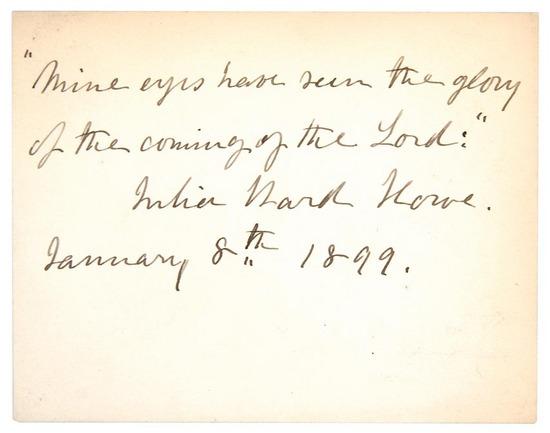 "Mine eyes have seen the glory
of the coming of the Lord:"
Julia Ward Howe.
January 8th 1899.